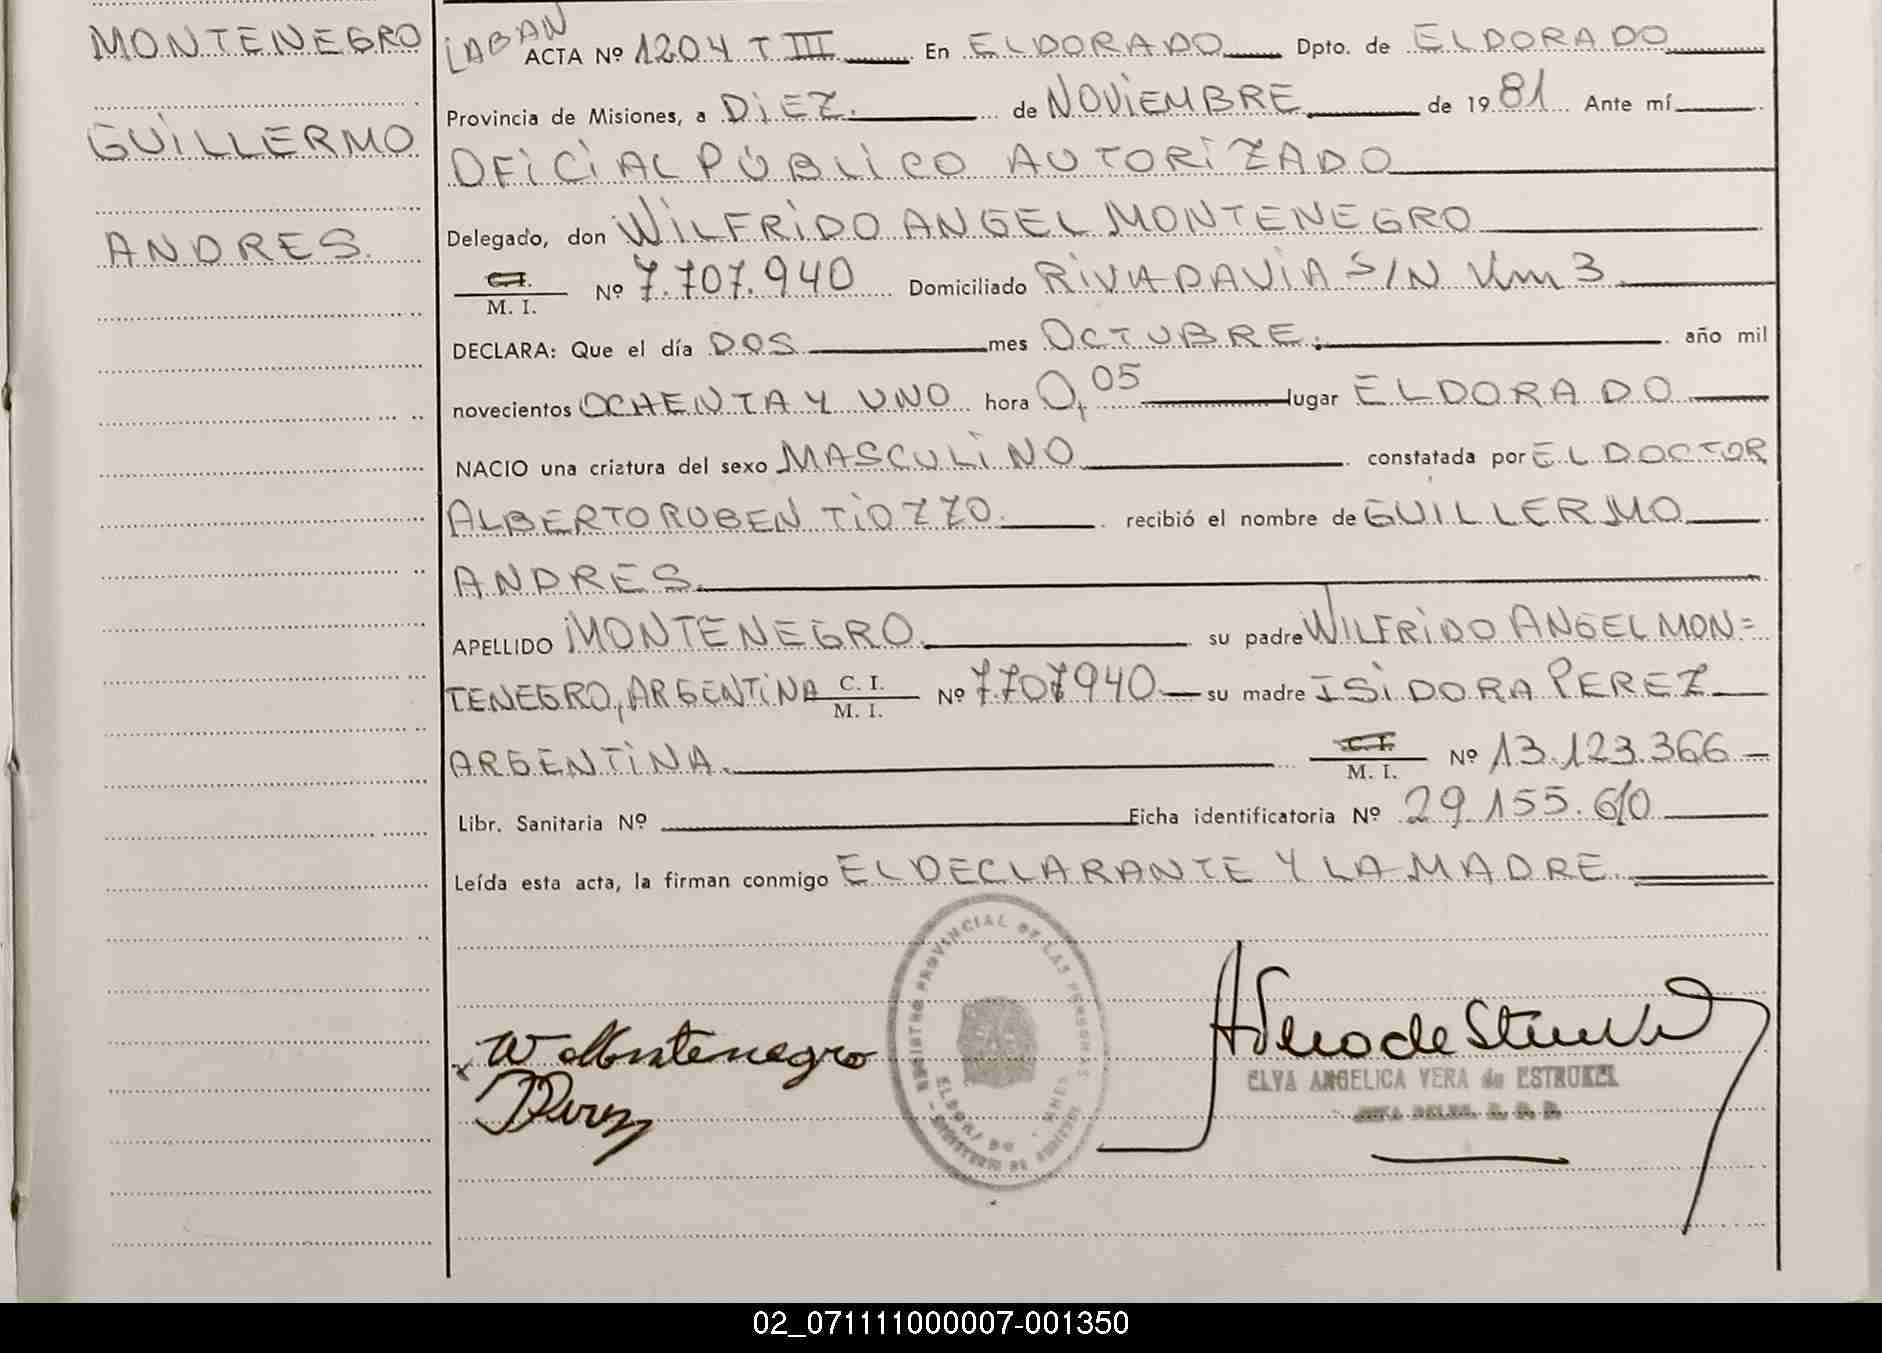 MONTENEGRO
GUILLERMO
ANDRES.
LABAN
ACTA Nº 1204 T III En ELDORADO Dpto. de ELDORADO
Provincia de Misiones, a DIEZ. de NOVIEMBRE de 1981 Ante mí
OFICIAL PÚBLICO AUTORIZADO
Delegado, don WILFRIDO ANGEL MONTENEGRO
C.I.
M. I. Nº 7.707.940 Domiciliado RIVADAVIA S/N Km 3
DECLARA: Que el día DOS mes OCTUBRE. año mil
novecientos OCHENTA Y UNO hora 0,05 lugar ELDORADO
NACIO una criatura del sexo MASCULINO constatada por EL DOCTOR
ALBERTO RUBEN TIOZZO. recibió el nombre de GUILLERMO
ANDRES.
APELLIDO MONTENEGRO. su padre WILFRIDO ANGEL MON=
TENEGRO, ARGENTINA C. I. Nº 7707940 su madre ISIDORA PEREZ
M. I.
ARGENTINA. C.I. Nº 13.123.366
M. I.
Libr. Sanitaria Nº Ficha identificatoria Nº 29.155.610
Leída esta acta, la firman conmigo EL DECLARANTE Y LA MADRE.
REGISTRO PROVINCIAL DE LAS PERSONAS
W Montenegro
I Perez
ELVA ANGELICA VERA de ESTRUKEL
02_071111000007-001350